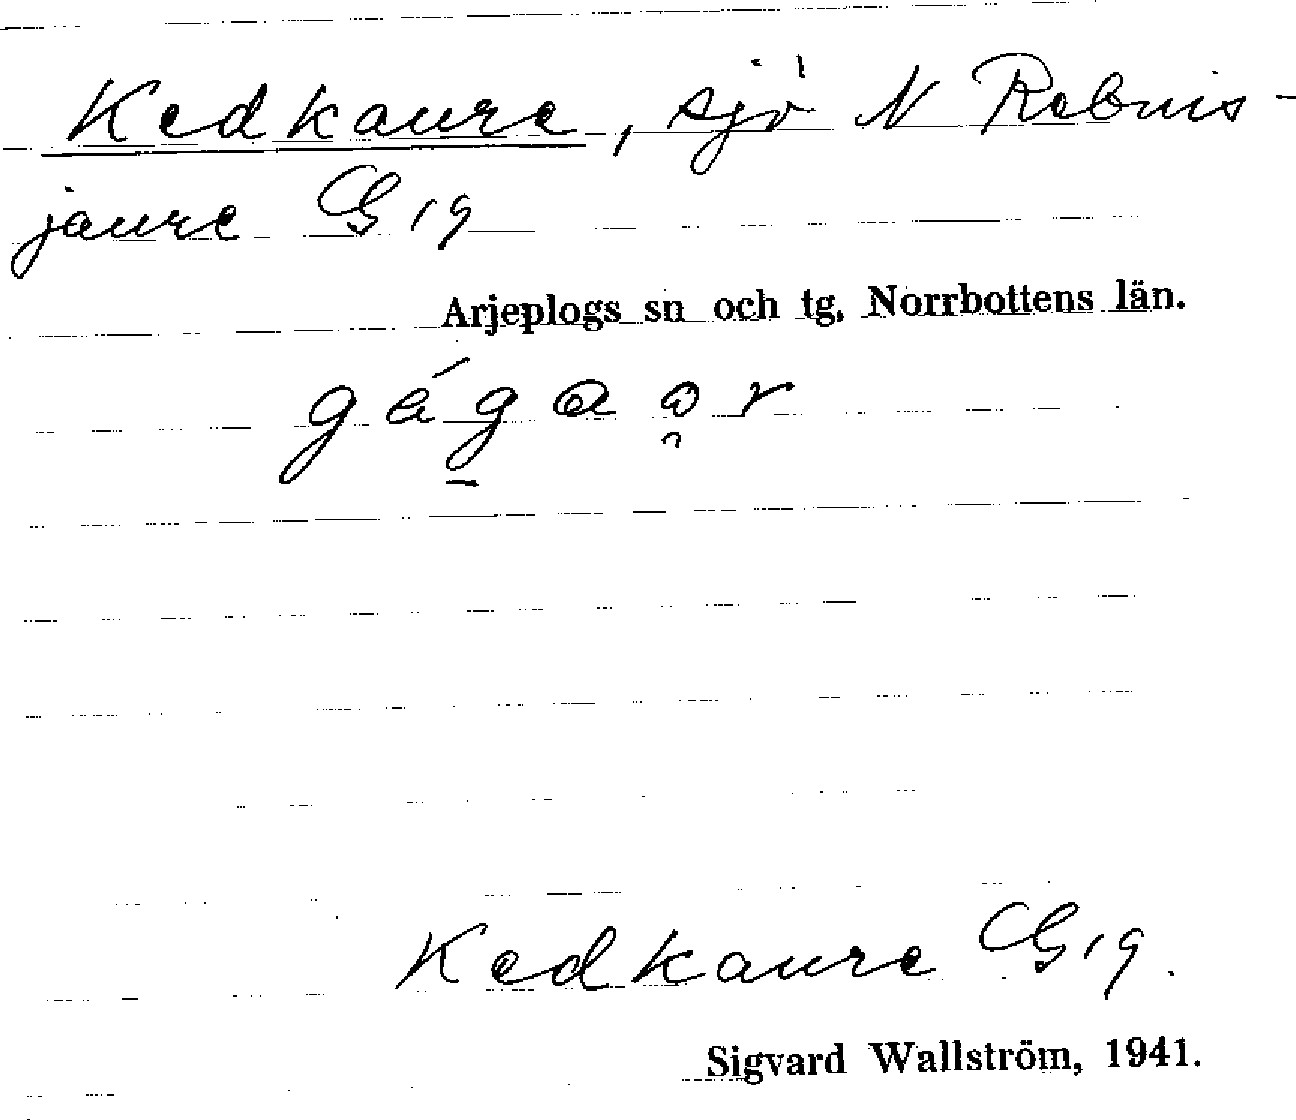 Kedkaure, sjö N Rebnis-
jaure G 19
Arjeplogs sn och tg, Norrbottens län.
Kedkaure G 19.
Sigvard Wallström, 1941.